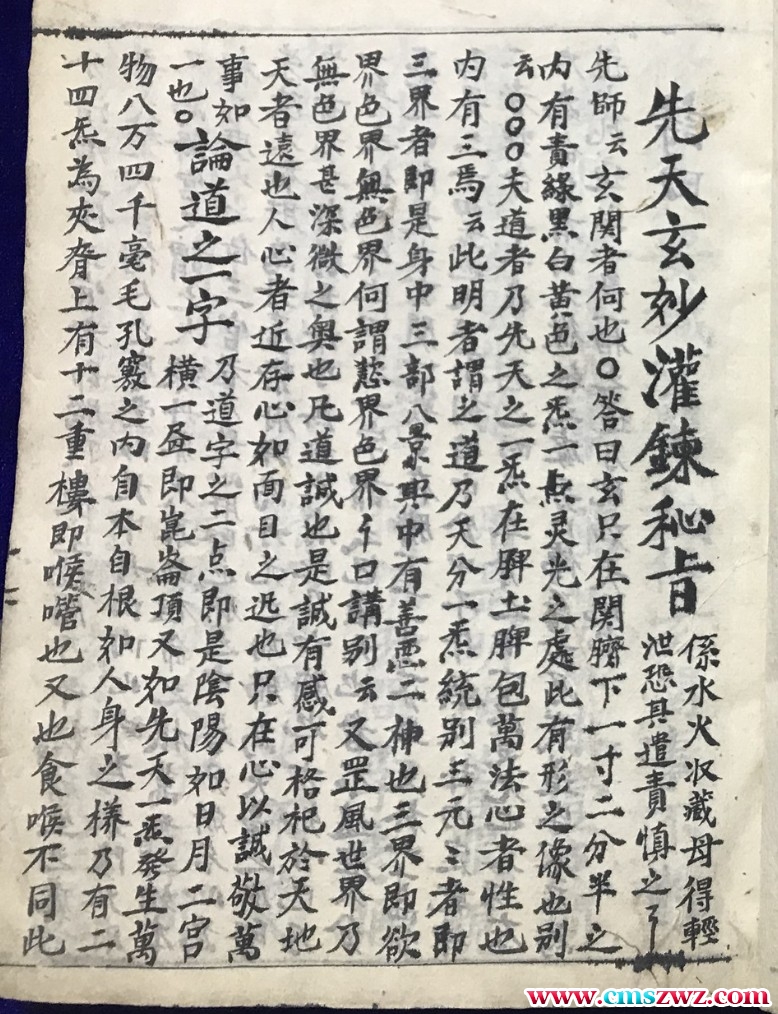 先天玄妙灌鍊秘旨
係水火收藏母得輕
泄恐其遣責慎之
先師云玄関者何也〇答曰玄只在関臍下一寸二分半之
内有青緑黒白黄色之炁一点灵光之處此有形之像也别
云〇〇〇夫道者乃先天之一炁在脾土脾包萬法心者性也
内有三焉云此明者謂之道乃天分一炁統别三元〻者即
三界者即是身中三部八景與中有善悪二神也三界即欲
界色界無色界何謂慾界色界口講别云又罡風世界乃
無色界甚深微之奥也凡道誠也是誠有感可格祀於天地
天者遠也人心者近存心如面目之近也只在心以誠敬萬
事如論道之一字乃道字之二点即是陰陽如日月二宮
一也〇橫一画即崑崙頂又如先天一炁發生萬
物八万四千毫毛孔竅之内自本自根如人身之樣乃有二
十四炁為夾脊上有十二重樓即喉嚨也又也食喉不同此
www.cmszwz.com